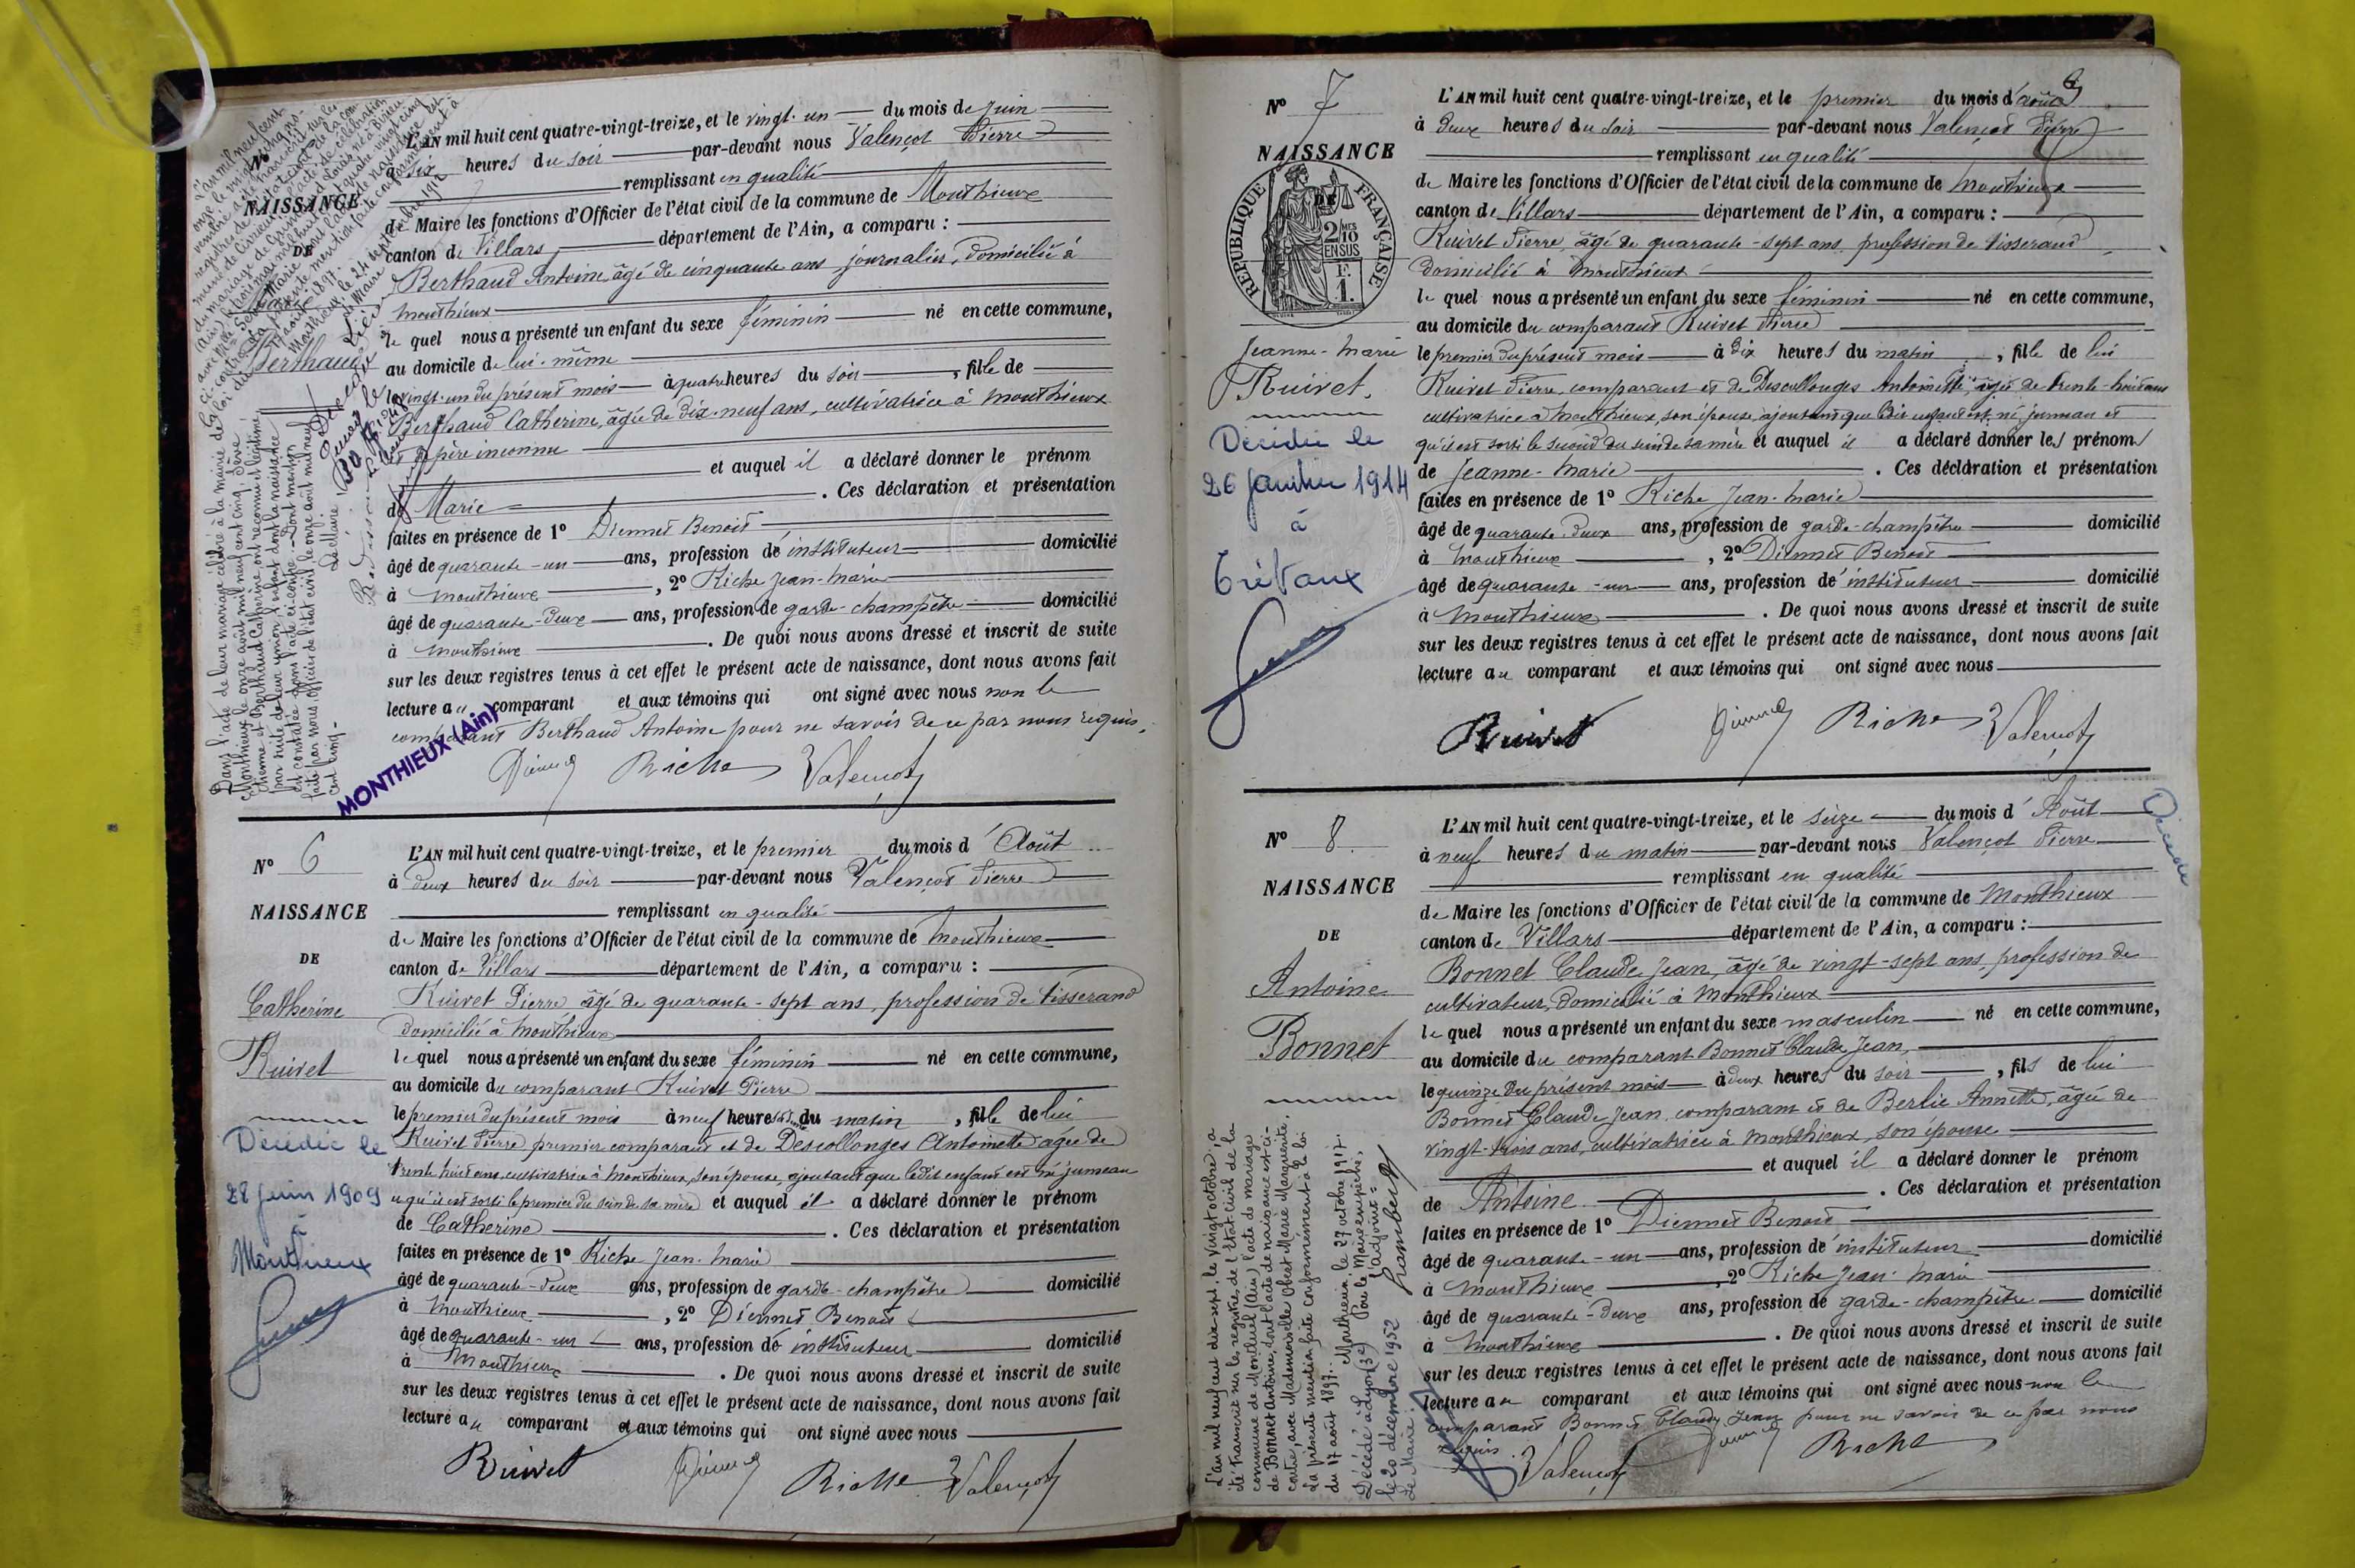 NAISSANCE
DE
Marie
Berthaud
L'AN mil huit cent quatre-vingt-treize, et le vingt-un du mois de Juin
à six heures du soir par-devant nous Valençot Pierre
remplissant en qualité
de Maire les fonctions d'Officier de l'état civil de la commune de Monthieux
canton de Villars département de l'Ain, a comparu :
Berthaud Antoine, âgé de cinquante ans journalier, domicilié à
Monthieux
le quel nous a présenté un enfant du sexe féminin né en cette commune,
au domicile de lui-même
le vingt-un du présent mois à quatre heures du soir, fille de
Berthaud Catherine, âgée de dix-neuf ans, cultivatrice à Monthieux
et de père inconnu
et auquel il a déclaré donner le prénom
de Marie . Ces déclaration et présentation
faites en présence de 1° Diennet Benoit
âgé de quarante-un ans, profession d'instituteur domicilié
à Monthieux, 2° Riche Jean-Marie
âgé de quarante-deux ans, profession de garde-champêtre domicilié
à Monthieux . De quoi nous avons dressé et inscrit de suite
sur les deux registres tenus à cet effet le présent acte de naissance, dont nous avons fait
lecture au comparant et aux témoins qui ont signé avec nous non le
comparant Berthaud Antoine pour ne savoir de ce par nous requis.
Riche Valençot
Dans l'acte de leur mariage célébré à la mairie de
Monthieux le onze août mil neuf cent cinq, Sève
Etienne et Berthaud Catherine ont reconnu et légitimé
par suite de leur union l'enfant dont la naissance
est constatée dans l'acte ci-contre. Dont mention
faite par nous officier de l'état civil le onze août mil neuf
cent cinq.
Le Maire
MONTHIEUX (Ain)
N° 6
NAISSANCE
DE
Catherine
Ruivet
Décédée le
28 juin 1909
à
Monthieux
L'AN mil huit cent quatre-vingt-treize, et le premier du mois d'Août
à deux heures du soir par-devant nous Valençot Pierre
remplissant en qualité
de Maire les fonctions d'Officier de l'état civil de la commune de Monthieux
canton de Villars département de l'Ain, a comparu :
Ruivet Pierre âgé de quarante-sept ans, profession de tisserand
domicilié à Monthieux
le quel nous a présenté un enfant du sexe féminin né en cette commune,
au domicile du comparant Ruivet Pierre
le premier du présent mois à neuf heures du matin, fille de lui
Ruivet Pierre premier comparant et de Descollonges Antoinette âgée de
trente huit ans, cultivatrice à Monthieux, son épouse, ajoutant que ledit enfant est né jumeau
et qu'il est sorti le premier du sein de sa mère et auquel il a déclaré donner le prénom
de Catherine . Ces déclaration et présentation
faites en présence de 1° Riche Jean-Marie
âgé de quarante-deux ans, profession de garde-champêtre domicilié
à Monthieux, 2° Diennet Benoit
âgé de quarante-un ans, profession d'instituteur domicilié
à Monthieux . De quoi nous avons dressé et inscrit de suite
sur les deux registres tenus à cet effet le présent acte de naissance, dont nous avons fait
lecture au comparant et aux témoins qui ont signé avec nous
Ruivet Riche Valençot
N° 7
NAISSANCE
DE
RÉPUBLIQUE FRANÇAISE
2/10 EN SUS
F.
1.
Jeanne-Marie
Ruivet.
Décédée le
26 Janvier 1914
à
Trévoux
L'AN mil huit cent quatre-vingt-treize, et le premier du mois d'août
à deux heures du soir par-devant nous Valençot Pierre
remplissant en qualité
de Maire les fonctions d'Officier de l'état civil de la commune de Monthieux
canton de Villars département de l'Ain, a comparu :
Ruivet Pierre, âgé de quarante-sept ans, profession de tisserand
domicilié à Monthieux
le quel nous a présenté un enfant du sexe féminin né en cette commune,
au domicile du comparant Ruivet Pierre
le premier du présent mois à dix heures du matin, fille de lui
Ruivet Pierre, comparant et de Descollonges Antoinette, âgée de trente-huit ans
cultivatrice à Monthieux, son épouse, ajoutant que ledit enfant est né jumeau et
qu'il est sorti le second du sein de sa mère et auquel il a déclaré donner les prénoms
de Jeanne-Marie . Ces déclaration et présentation
faites en présence de 1° Riche Jean-Marie
âgé de quarante-deux ans, profession de garde-champêtre domicilié
à Monthieux, 2° Diennet Benoit
âgé de quarante-un ans, profession d'instituteur domicilié
à Monthieux . De quoi nous avons dressé et inscrit de suite
sur les deux registres tenus à cet effet le présent acte de naissance, dont nous avons fait
lecture au comparant et aux témoins qui ont signé avec nous
Ruivet Riche Valençot
N° 8.
NAISSANCE
DE
Antoine
Bonnet
Décédé
L'AN mil huit cent quatre-vingt-treize, et le seize du mois d'Août
à neuf heures du matin par-devant nous Valençot Pierre
remplissant en qualité
de Maire les fonctions d'Officier de l'état civil de la commune de Monthieux
canton de Villars département de l'Ain, a comparu :
Bonnet Claude Jean, âgé de vingt-sept ans, profession de
cultivateur, domicilié à Monthieux
le quel nous a présenté un enfant du sexe masculin né en cette commune,
au domicile du comparant Bonnet Claude Jean,
le quinze du présent mois à deux heures du soir, fils de lui
Bonnet Claude Jean comparant et de Berlie Annette, âgée de
vingt-trois ans, cultivatrice à Monthieux, son épouse
et auquel il a déclaré donner le prénom
de Antoine . Ces déclaration et présentation
faites en présence de 1° Diennet Benoit
âgé de quarante-un ans, profession d'instituteur domicilié
à Monthieux, 2° Riche Jean-Marie
âgé de quarante-deux ans, profession de garde-champêtre domicilié
à Monthieux . De quoi nous avons dressé et inscrit de suite
sur les deux registres tenus à cet effet le présent acte de naissance, dont nous avons fait
lecture au comparant et aux témoins qui ont signé avec nous non le
comparant Bonnet Claude Jean pour ne savoir de ce par nous
requis.
Valençot Riche
L'an mil neuf cent dix-sept le vingt octobre, a
été transcrit sur les registres de l'état civil de la
commune de Montluel (Ain) l'acte de mariage
de Bonnet Antoine, dont l'acte de naissance est ci-
contre, avec Mademoiselle Marie Marguerite.
La présente mention faite conformément à la loi
du 17 août 1897. Monthieux, le 27 octobre 1917.
Pour le Maire empêché,
l'adjoint:
Décédé à Lyon (3e)
le 20 décembre 1952
Le Maire.